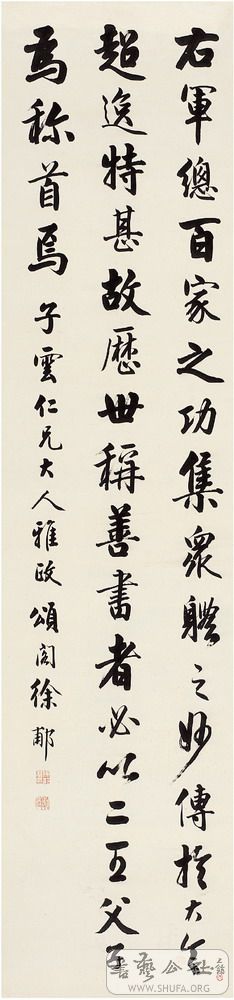 右軍總百家之功集衆軆之妙傳扵大令
超逸特甚故歷世稱善書者必以二王父子
爲称首焉 子雲仁兄大人雅政 頌閣徐郙
書藝公社
WWW.SHUFA.ORG